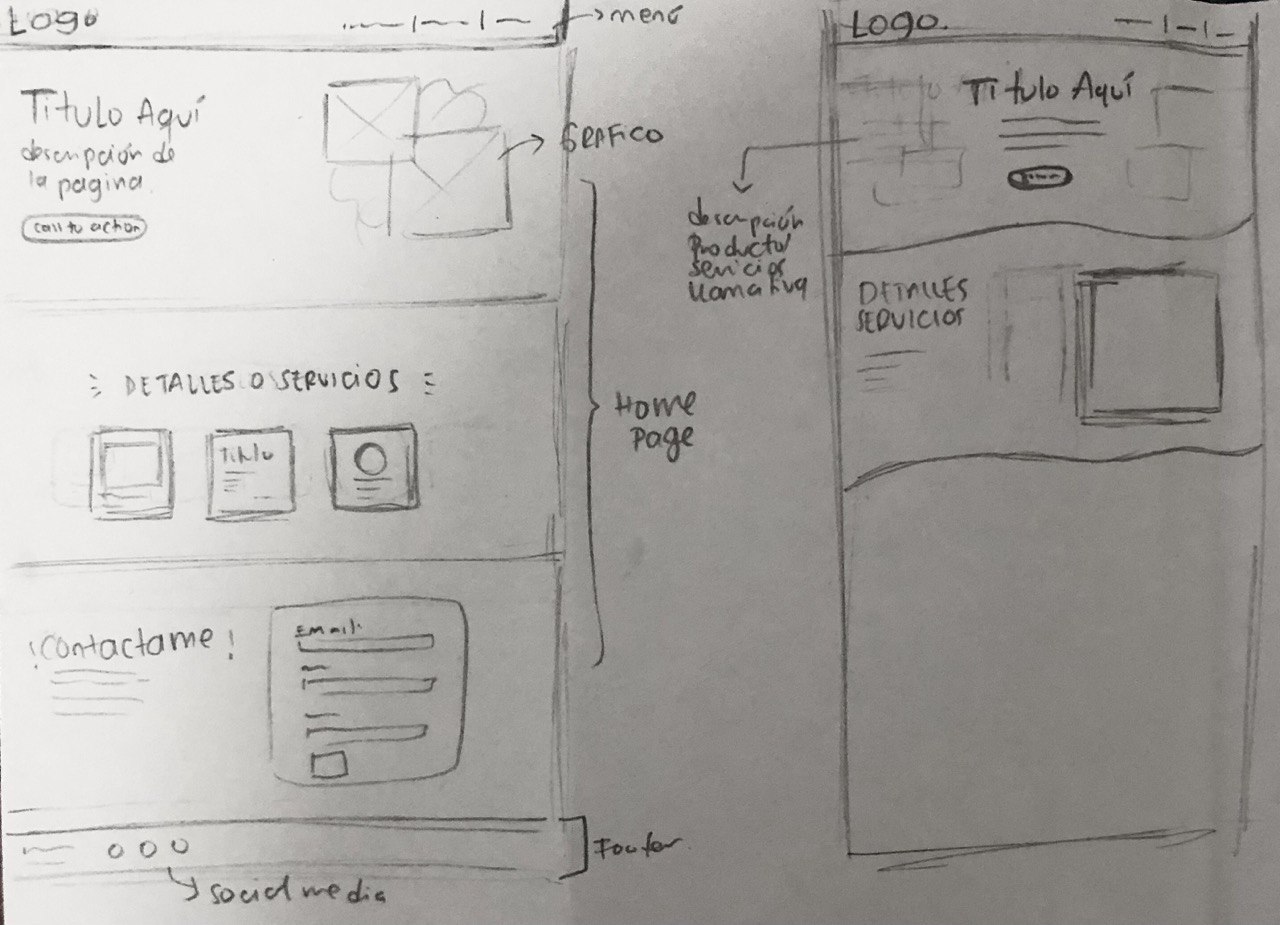 Logo
menú
Titulo Aquí
descripción de
la pagina.
call to action
GRAFICO
DETALLES O SERVICIOS
Titulo
Home
Page
¡Contactame!
Email:
Footer
social media
Logo.
Titulo Aquí
descripción
Producto/
servicios
llamativa
DETALLES
SERVICIOS